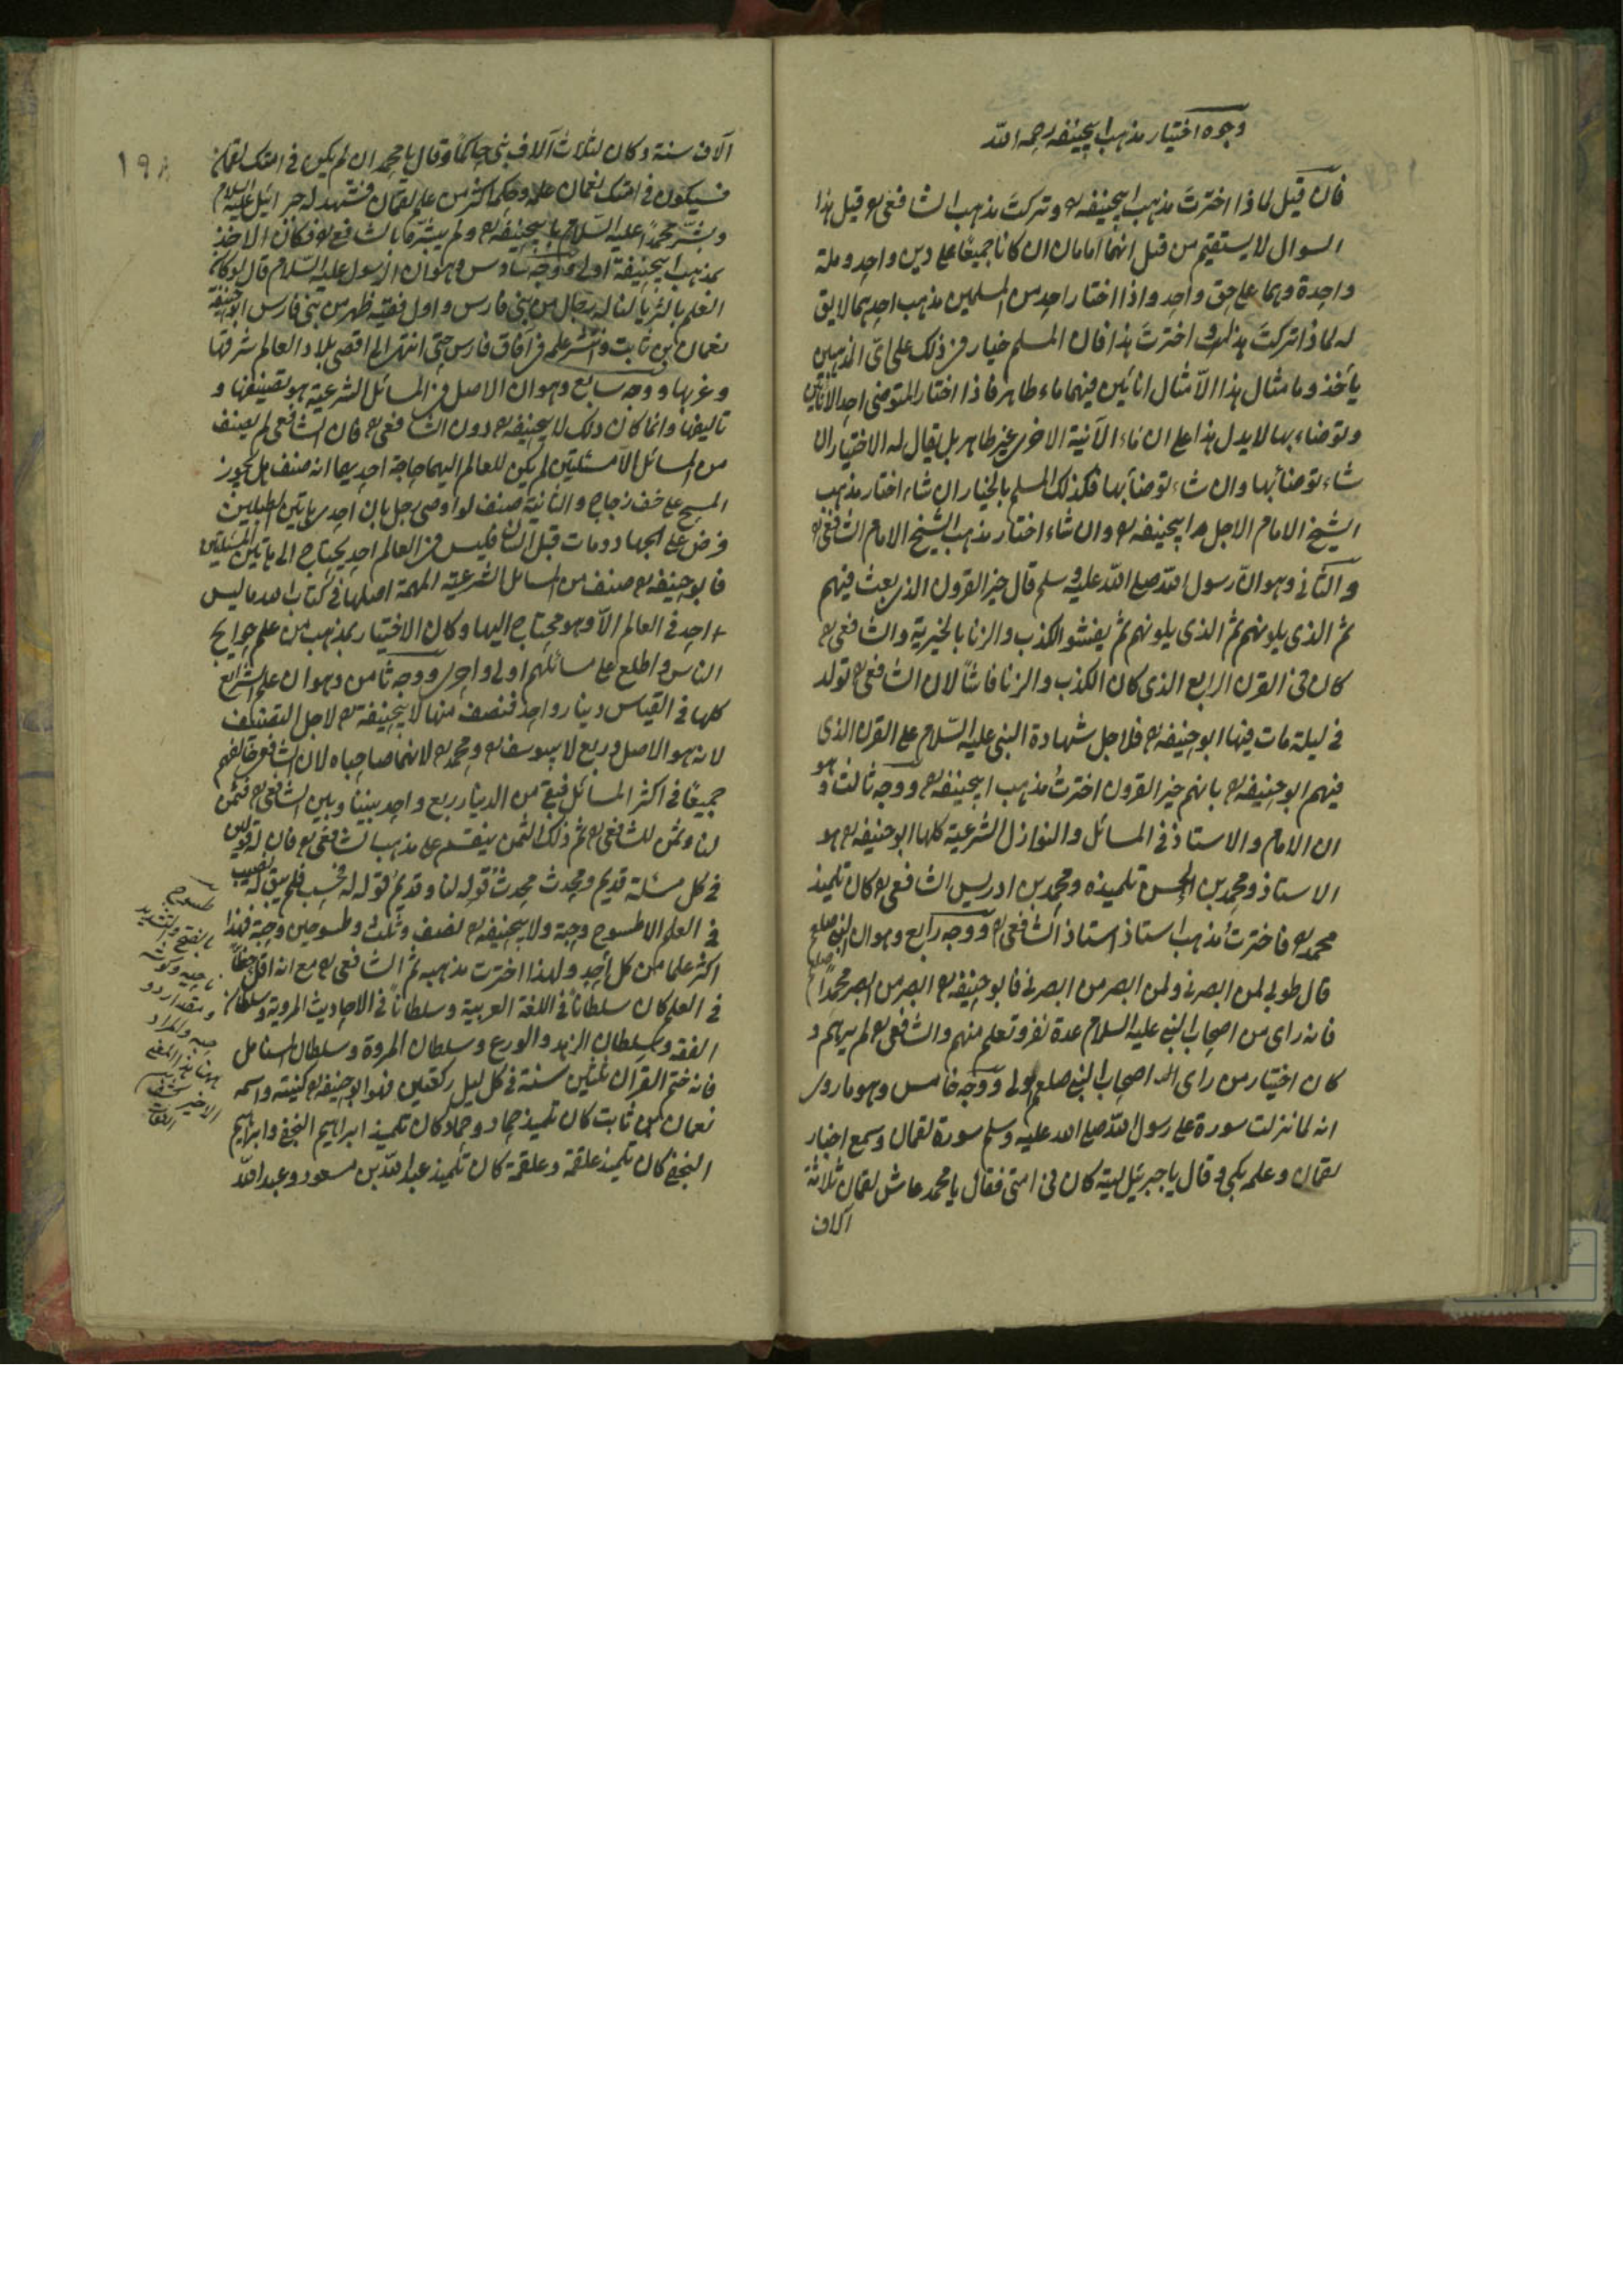 وجوه اختيار مذهب ابيحنيفه رحمه الله
فان قيل لماذا اخترتَ مذهب ابيحنيفه رح وتركتَ مذهب الشافعى رح قيل هذا
السوال لا يستقيم من قبل انهما امامان ان كانا جميعًا على دين واحد وملة
واحدة وهما على حق واحد واذا اختار احد من المسلمين مذهب احدهما لا يق
له لماذا تركتَ هذا واخترتَ هذا فان المسلم خيار فى ذلك على اىّ المذهبين
يأخذ وما مثال هذا الا مثال انائين فيهما ماء طاهر فاذا اختار المتوضى احد الانائين
وتوضاء بها لا يدل هذا على ان ماء الآنية الاخرى غير طاهر بل يقال له الاختيار ان
شاء توضأ بها وان شاء توضأ بها فكذلك المسلم بالخيار ان شاء اختار مذهب
الشيخ الامام الاجل ابيحنيفه رح وان شاء اختار مذهب الشيخ الامام الشافعى رح
والثانى وهو انّ رسول الله صلى الله عليه وسلم قال خير القرون الذى بعثت فيهم
ثم الذى يلونهم ثم الذى يلونهم ثم يفشو الكذب والزنا بالخيرية والشافعى رح
كان فى القرن الرابع الذى كان الكذب والزنا فاشًا لان الشافعى رح تولد
فى ليلة مات فيها ابو حنيفه رح فلاجل شهادة النبى عليه السّلام على القرن الذى
فيهم ابو حنيفه رح بانهم خير القرون اخترتُ مذهب ابيحنيفه رح ووجه ثالث وهو
ان الامام والاستاذ فى المسائل والنوازل الشرعية كلها ابو حنيفه رح هو
الاستاذ ومحمد بن الحسن تلميذه ومحمد بن ادريس الشافعى رح كان تلميذ
محمد رح فاخترتُ مذهب استاذ استاذ الشافعى رح ووجه رابع وهو ان النبى صلعم
قال طوبى لمن ابصرنى ولمن ابصر من ابصرنى فابو حنيفه رح ابصر من ابصر محمدًا صلعم
فانه راى من اصحاب النبى عليه السلام عدة نفر وتعلم منهم والشافعى رح لم يرهم و
كان اختيار من راى اصحاب النبى صلعم اولى ووجه خامس وهو ما روى
انه لما نزلت سورة على رسول الله صلى الله عليه وسلم سورة لقمان وسمع اخبار
لقمان وعلمه بكى وقال يا جبرئيل ليته كان فى امتى فقال يا محمد عاش لقمان ثلاثة
آلاف
١٩٨
آلاف سنة وكان لثلاث آلاف نبى حاكمًا وقال يا محمد ان لم يكن فى امتك لقمان
فسيكون فى امتك نعمان علمه وحكمه اكثر من علم لقمان فشهد له جبرائيل عليه السلام
وبشّر محمدًا عليه السّلام بابيحنيفه رح ولم يبشر بالشافعى رح فكان الاخذ
بمذهب ابيحنيفة اولى ووجه سادس وهو ان الرسول عليه السّلام قال لو كان
العلم بالثريا لناله رجال من بنى فارس واول فقيه ظهر من بنى فارس ابو حنيفة
نعمان بن ثابت وانتشر علمه فى آفاق فارس حتى انتهى الى اقصى بلاد العالم شرقها
وغربها ووجه سابع وهو ان الاصل فى المسائل الشرعية هو تصنيفها و
تاليفها وانما كان ذلك لابيحنيفه رح دون الشافعى رح فان الشافعى لم يصنف
من المسائل الا مسئلتين لم يكن للعالم اليهما حاجة احديهما انه صنف هل يجوز
المسح على خف زجاج والثانية صنف لو اوصى رجل بان احد
فرض على الجهاد ومات قبل البيان فليس فى العالم احد يحتاج الى هاتين المسئلتين
فابو حنيفه رح صنف من المسائل الشرعية المهمة اصلها فى كتاب الله ما ليس
احد فى العالم الّا وهو محتاج اليها وكان الاختيار بمذهب من علم حوايج
الناس واطلع على مسائلهم اولى واحرى ووجه ثامن وهو ان علم الشرايع
كلها فى القياس دينار واحد فنصف منها لابيحنيفة رح لاجل التصنيف
لانه هو الاصل وربع لابيوسف رح ومحمد رح لانهما صاحباه لان الشافعى خالفهم
جميعًا فى اكثر المسائل فبقى من الدينار ربع واحد بيننا وبين الشافعى رح فثمن
لنا وثمن للشافعى رح ثم ذلك الثمن ينقسم على مذهب الشافعى رح فان له قولين
فى كل مسئلة قديم ومحدث محدثُ قوله لنا وقديمُ قوله له فحسب فلم يبق له نصيب
فى العلم الا طسوج وحبة ولابيحنيفه رح نصف وثلث وطسوجين وحبة فهذا
اكثر علما من كل احد ولهذا اخترت مذهبه ثم الشافعى رح مع انه اقل حظًا
فى العلم كان سلطانًا فى اللغة العربية وسلطانًا فى الاحاديث المروية وسلطان
الفقه وسلطان الزهد والورع وسلطان المروة وسلطان
فانه ختم القرآن ثلثين سنة فى كل ليل ركعتين فهو ابو حنيفه رح كنيته واسمه
نعمان بن ثابت كان تلميذ حماد وحماد كان تلميذ ابراهيم النخعى وابراهيم
النخعى كان تلميذ علقمة وعلقمة كان تلميذ عبد الله بن مسعود وعبد الله
طسوج
بالفتح والتشديد
ناحيه وكوشه
ومقدار دو
حبه والمراد
ههنا هذا المعنى
الاخير